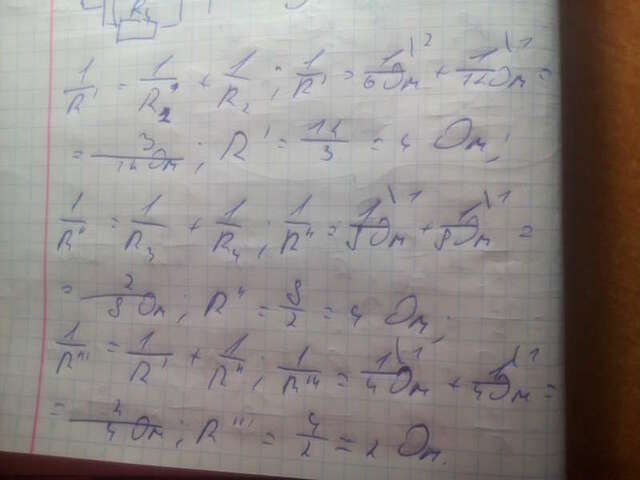 R₄
1/R' = 1/R₂ + 1/R₂ ; 1/R' = 1\2/6Ом + 1\1/12Ом =
= 3/12Ом ; R' = 12/3 = 4 Ом;
1/R'' = 1/R₃ + 1/R₄ ; 1/R'' = 1\1/8Ом + 1\1/8Ом =
= 2/8Ом ; R'' = 8/2 = 4 Ом;
1/R''' = 1/R' + 1/R'' ; 1/R''' = 1\1/4Ом + 1\1/4Ом =
= 2/4Ом ; R''' = 4/2 = 2 Ом.